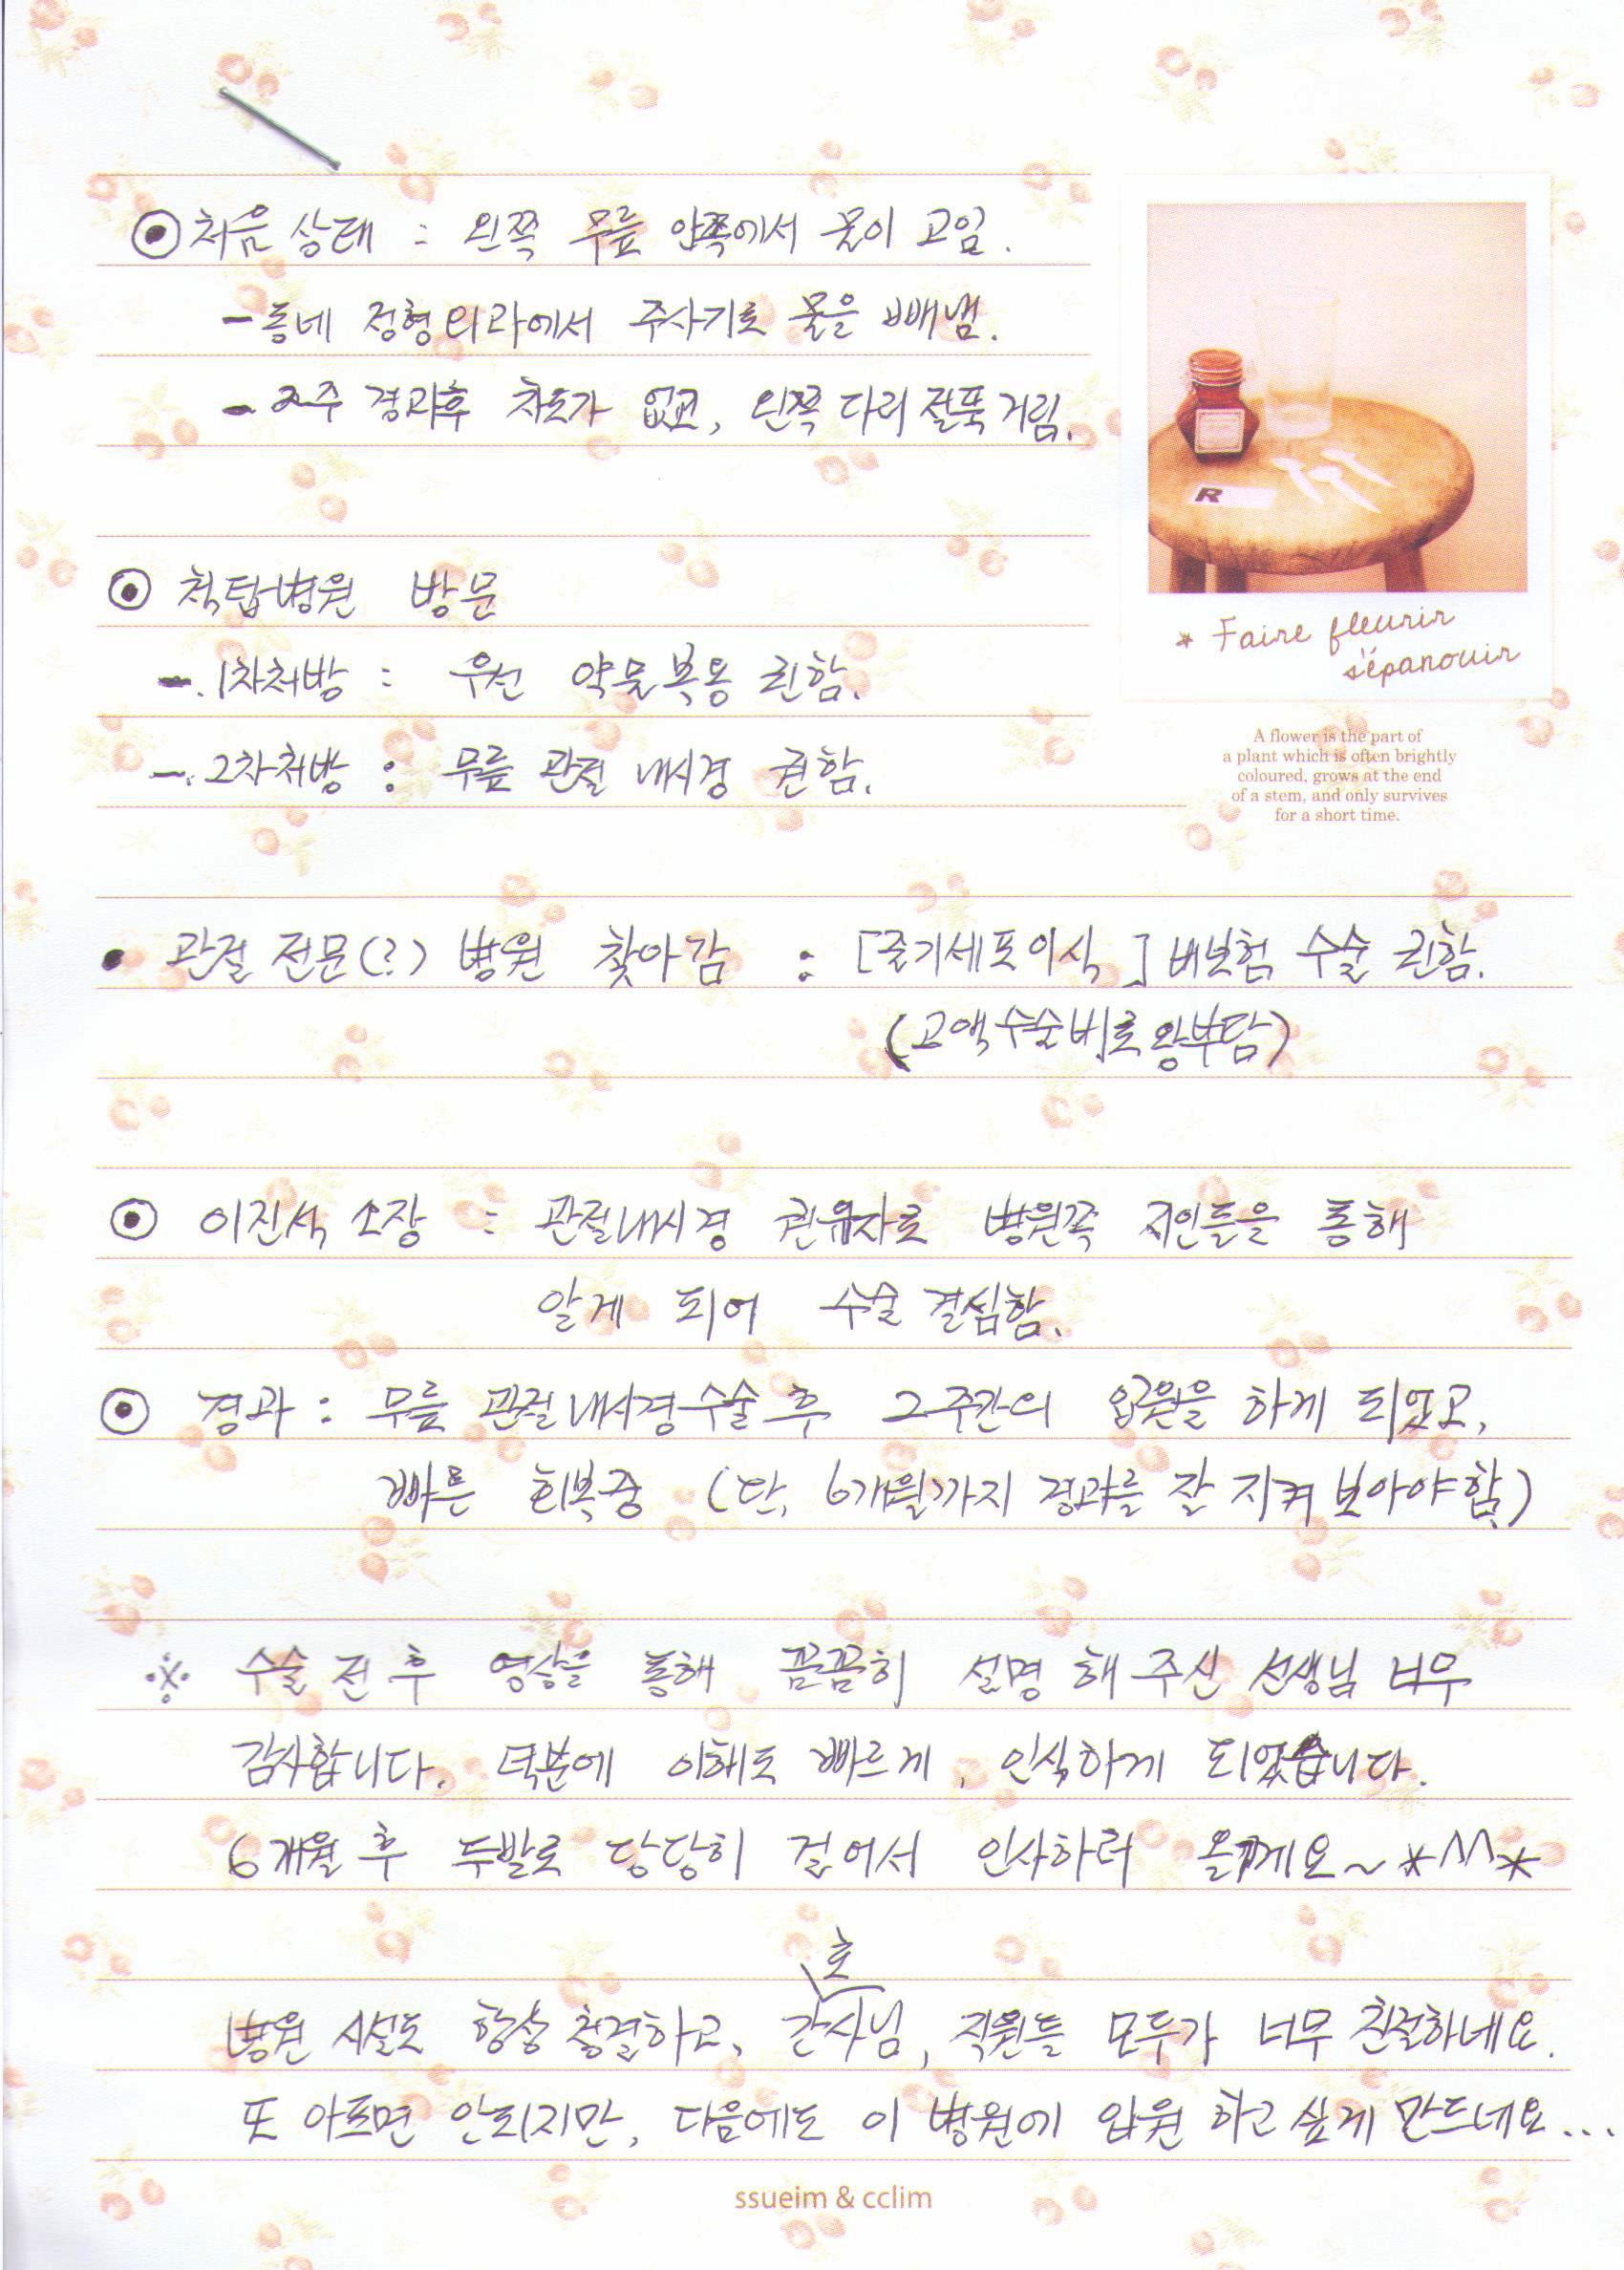 ⊙ 처음 상태 : 왼쪽 무릎 안쪽에서 물이 고임.
- 동네 정형외과에서 주사기로 물을 빼냄.
- 2주 경과후 차도가 없고, 왼쪽 다리 절뚝거림.
⊙ 척탑병원 방문
-. 1차처방 : 우선 약물복용 권함.
-. 2차처방 : 무릎 관절 내시경 권함.
• 관절 전문(?) 병원 찾아감 : [줄기세포이식] 비보험 수술 권함.
(고액수술비로 왕부담)
⊙ 이진석 소장 : 관절내시경 권유자로 병원쪽 지인들을 통해
알게 되어 수술 결심함.
⊙ 경과 : 무릎 관절내시경수술 후 2주간의 입원을 하게 되었고,
빠른 회복중 (단, 6개월까지 경과를 잘 지켜보아야함.)
※ 수술 전 후 영상을 통해 꼼꼼히 설명 해 주신 선생님 너무
감사합니다. 덕분에 이해도 빠르게, 인식하게 되었습니다.
6개월 후 두발로 당당히 걸어서 인사하러 올께요~ *^^*
호
병원 시설도 항상 청결하고, 간사님, 직원들 모두가 너무 친절하네요.
또 아프면 안되지만, 다음에도 이 병원에 입원 하고 싶게 만드네요...
R
* Faire fleurir
s'épanouir
A flower is the part of
a plant which is often brightly
coloured, grows at the end
of a stem, and only survives
for a short time.
ssueim & cclim